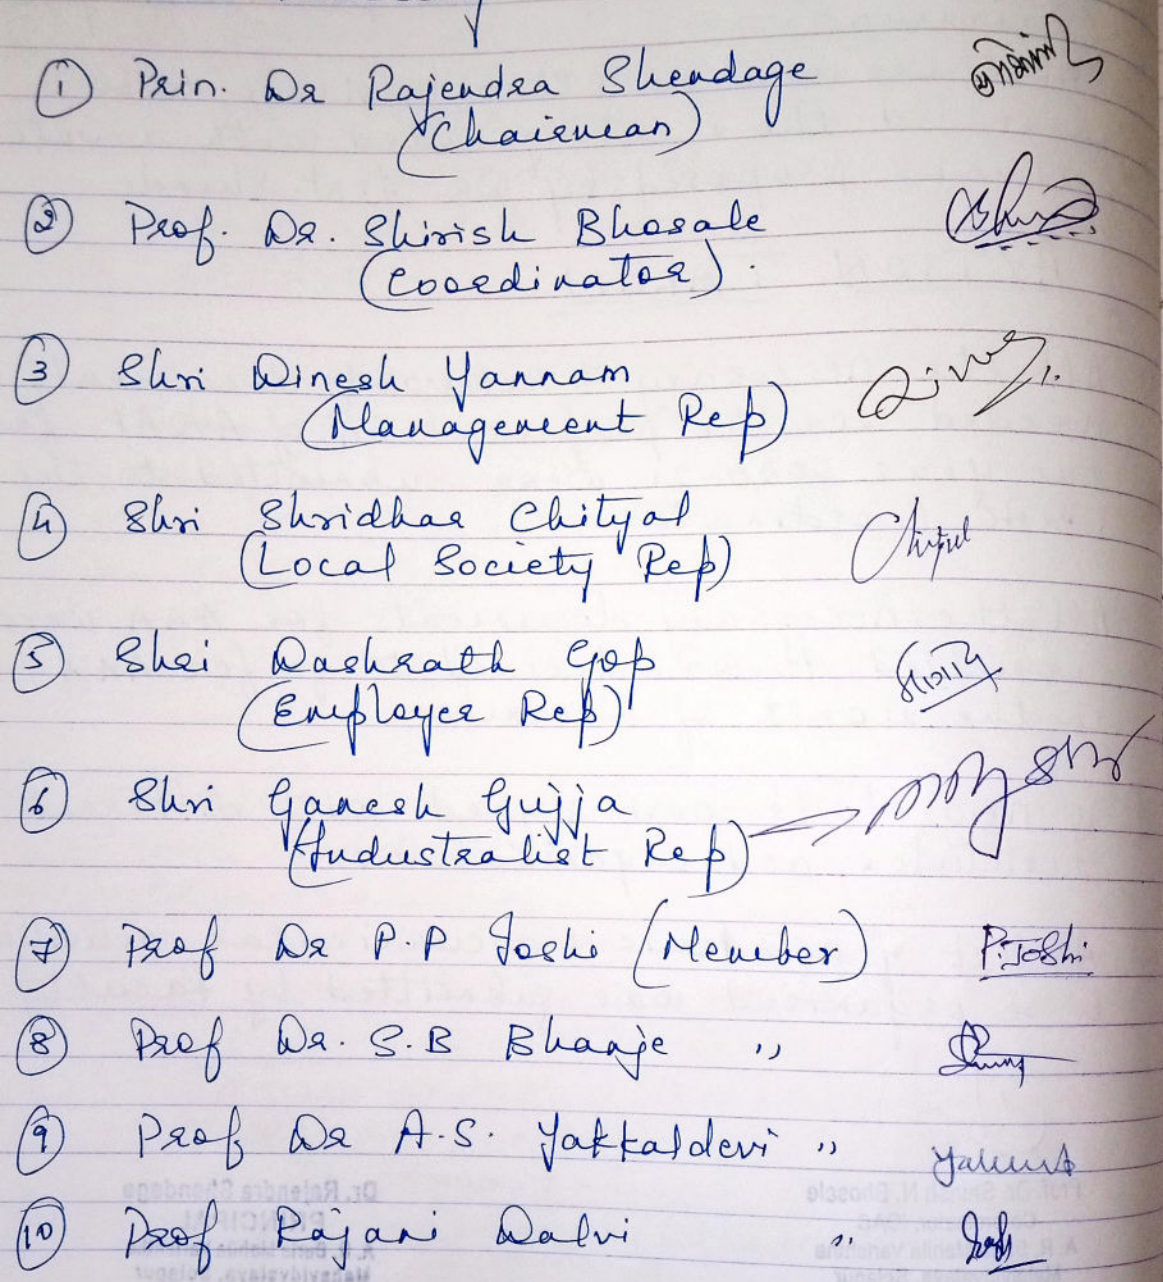 1 Prin. Dr Rajendra Shendage
(Chairman)
2 Prof. Dr. Shirish Bhosale
(Coordinator).
3 Shri Dinesh Yannam
(Management Rep)
4 Shri Shridhar Chityal
(Local Society Rep)
5 Shri Dashrath Gop
(Employer Rep)
6 Shri Ganesh Gujja
(Industralist Rep)
7 Prof Dr P.P Joshi (Member) P.Joshi
8 Prof Dr. S.B Bhanje ,,
9 Prof Dr A.S. Yakkaldevi ,,
10 Prof Rajani Dalvi ,,